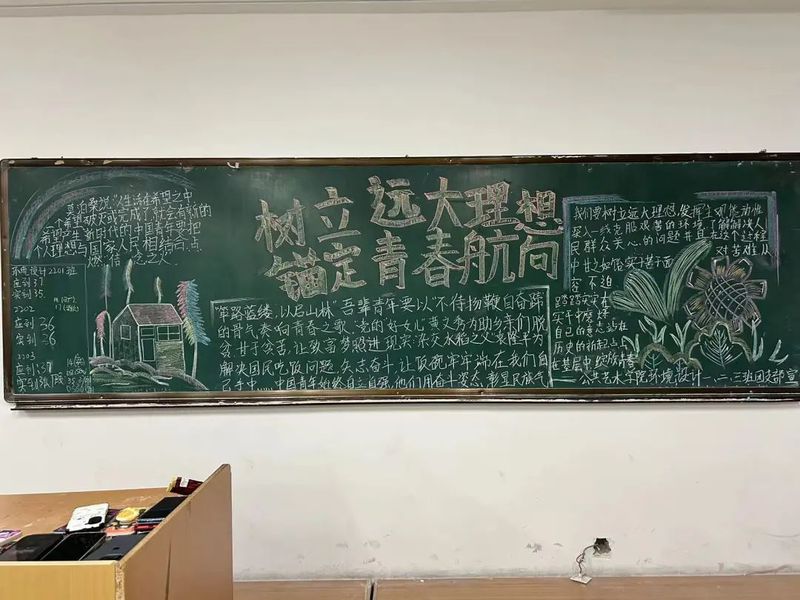 树立远大理想
锚定青春航向
生活在希望之中
个人理想与国家人民相结合,点
燃信念之火
环境设计2201班
应到37
实到35
2202
应到36
实到26
2203
应到37
筚路蓝缕,以启山林 吾辈青年要以"不待扬鞭自奋蹄
的骨气奏响青春之歌,党的好女儿黄文秀为助乡亲们脱
贫,甘于实苦,让致富梦照进现实,杂交水稻之父袁隆平为
解决国民吃饭问题,矢志奋斗,让饭碗牢牢端在我们自
己手中……中国青年始终自立自强,他们用奋斗姿态,彰显民族气
我们要树立远大理想,发挥主观能动性
深入一线克服艰苦的环境,了解解决人
民群众关心的问题并且在这个过程
中甘之如饴,实干苦干,面
对苦难从
容不迫
踏踏实实在
实干中磨炼
自己的意志,站在
历史的新起点
在基层中绽放青春
公共艺术学院环境设计一、二、三班团支部宣